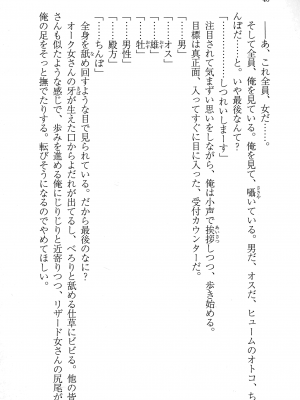 ――あ、これ全員、女だ……。
そして全員、俺を見ている。俺を見て、囁いている。男だ、オスだ、ヒュームのオトコ、ち
んぽだ……と。いや最後なんて？
「……しつれいしまーす」
注目されて気まずい思いをしながら、俺は小声で挨拶しつつ、歩き始める。
目標は真正面、入ってすぐに目に入った、受付カウンターだ。
「……男」
「……オス」
「……雄」
「……牡」
「……男性」
「……殿方」
「……ちんぽ」
全身を舐め回すような目で見られている。だから最後のなに？
オーク女さんの牙が生えた口からよだれが出てるし、べろりと舐める仕草にビビる。他の皆
さんも似たような感じで、歩みを進める俺にじりじりと近寄りつつ、リザード女さんの尻尾が
俺の足をそっと撫でたりする。転びそうになるのでやめてほしい。